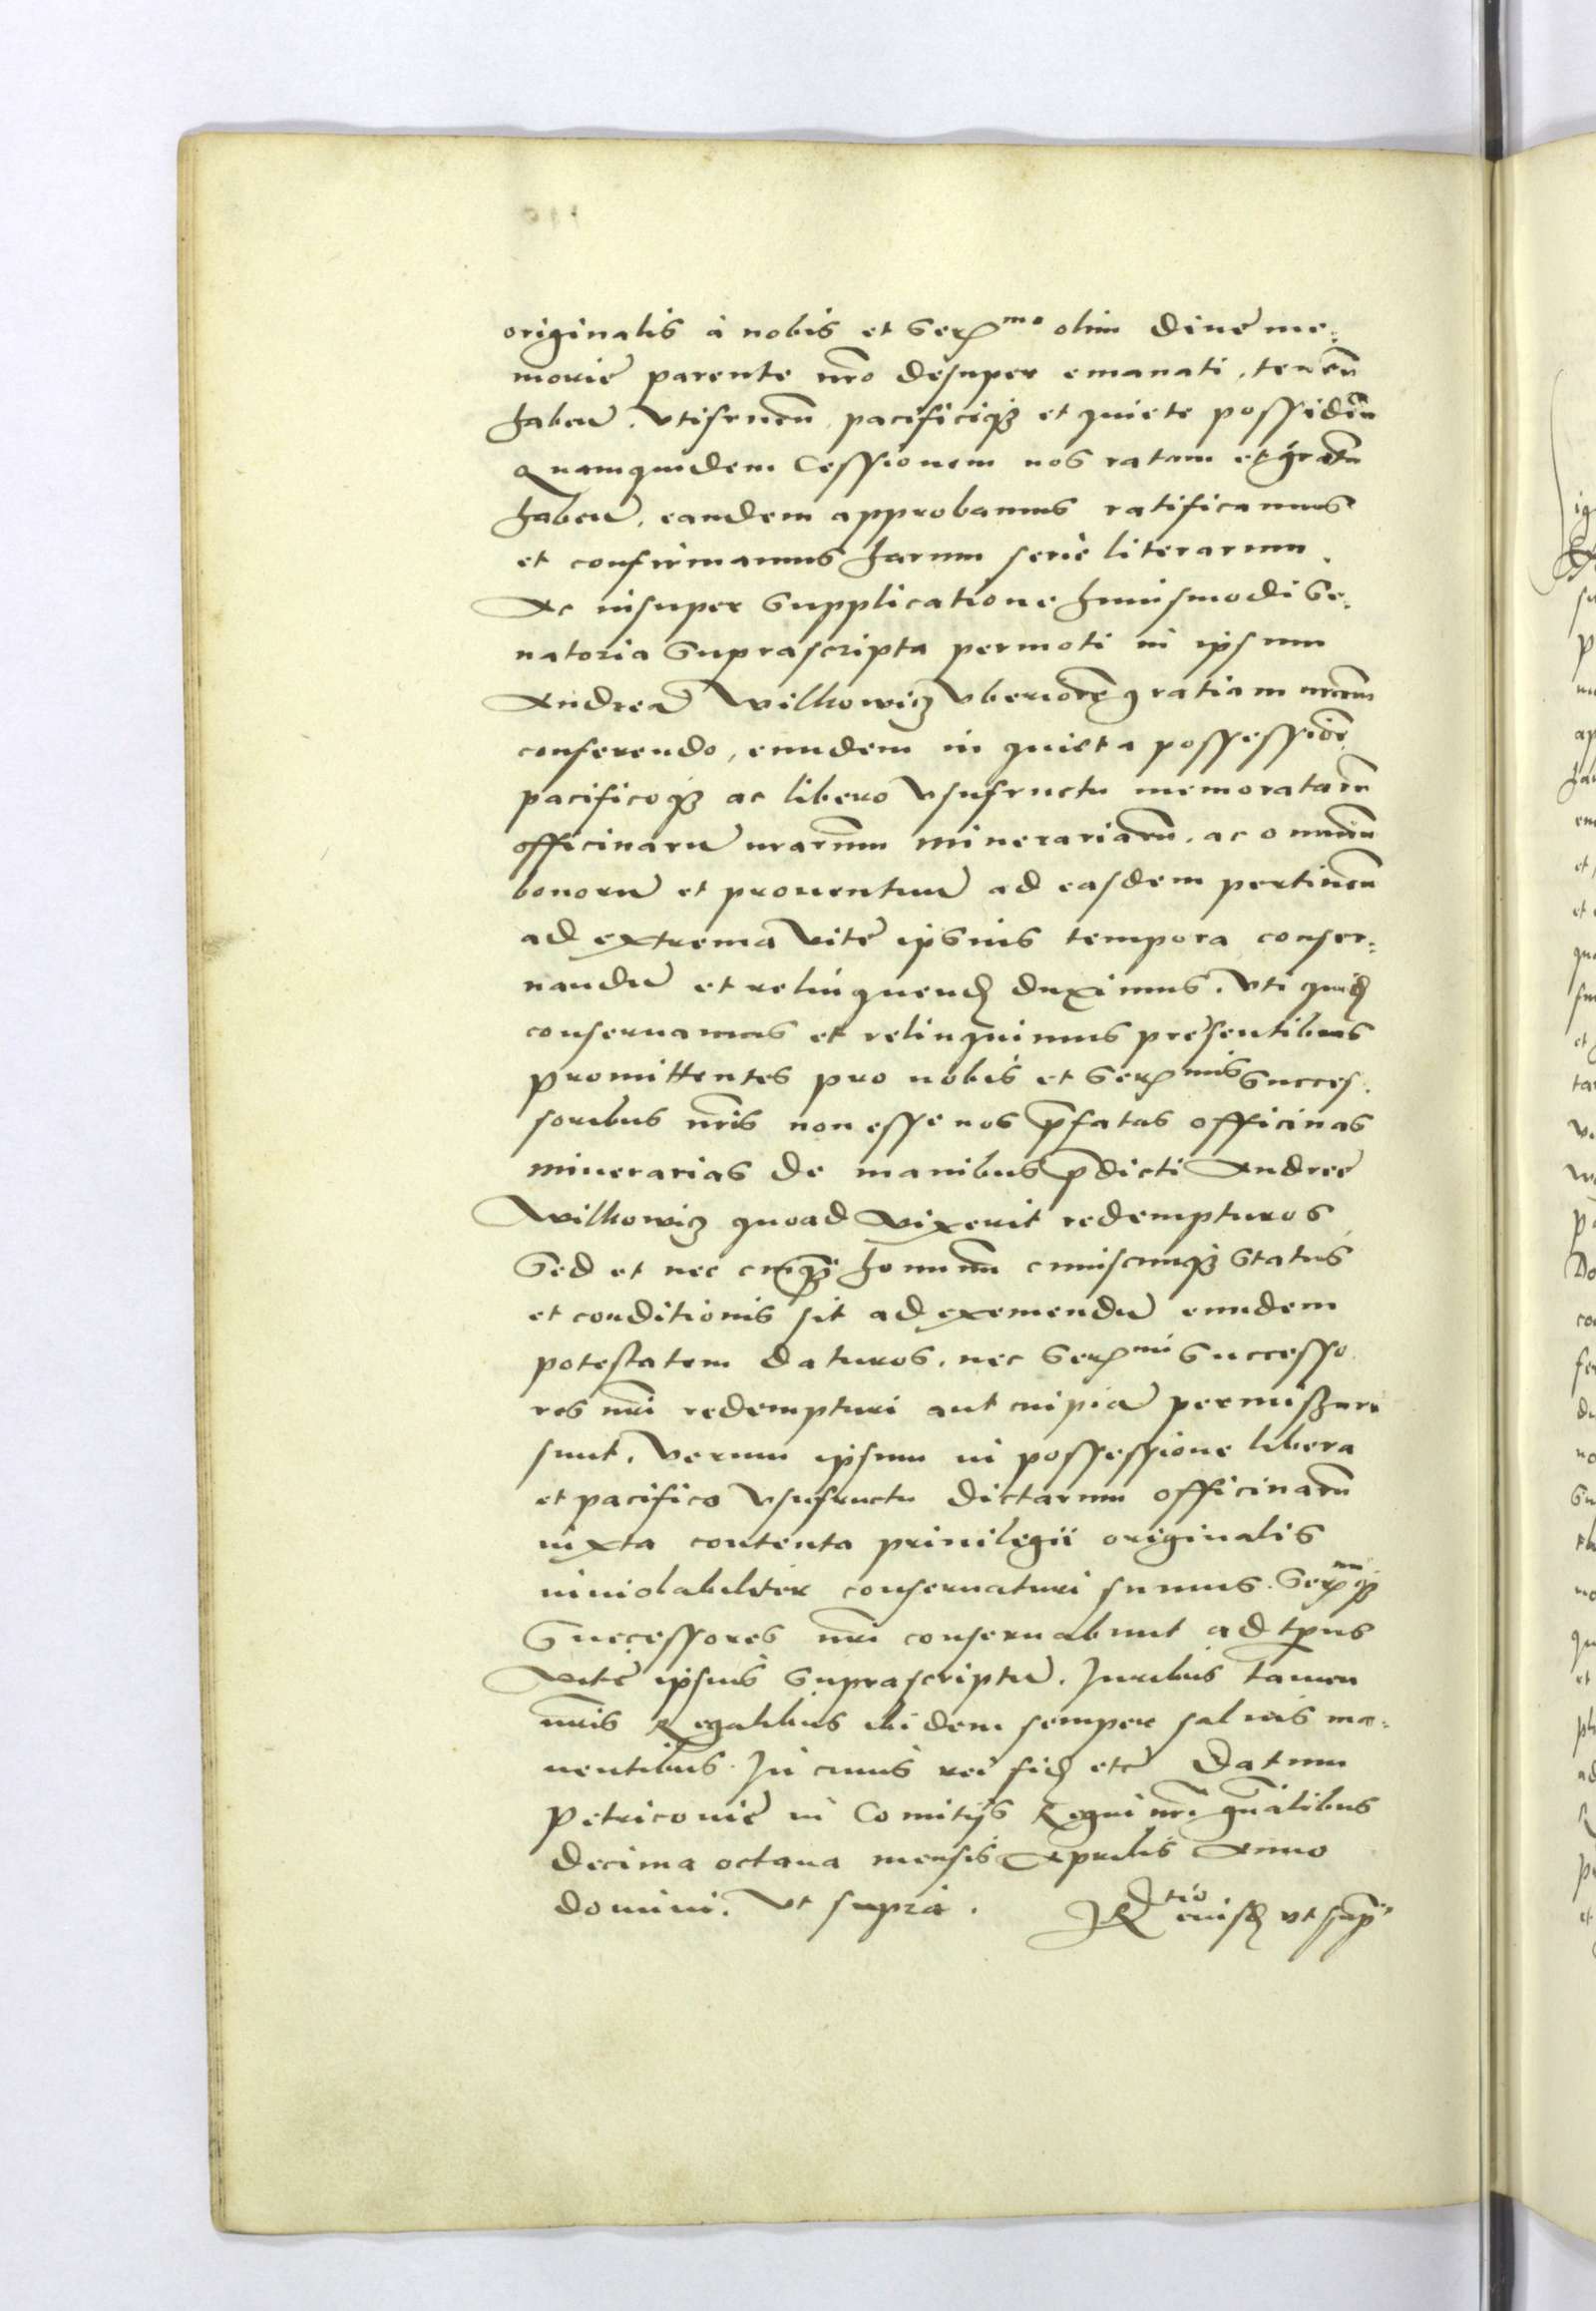 originalis à nobis et Ser^mo olim diuę me:
morię parente nrō desuper emanati, tenen̄
haben̄. vtifruen̄, pacificiq₃ et quiete possiden̄
Quamquidem Cessionem nos ratam et gratā
haben̄, eandem approbamus ratificamus
et confirmamus harum serie literarum.
Ac insuper Supplicatione huiusmodi Se:
natoria Suprascripta permoti in ipsum
Andreā Wilkowicz vberiorē gratiam nrām
conferendo, eundem in quieta possessiōe
pacificoq₃ ac libero vsufructu memoratarū
officinarū nrārum minerariarū, ac omniū
bonorū et prouentuū ad easdem pertinen̄
ad extrema vitę ipsius tempora conser:
uandū et relinquend duximus. Vti quid
conseruamus et relinquimus pręsentibus
promittentes pro nobis et Ser^mis Succes.
soribus nrīs non esse nos p̄fatas officinas
minerarias de manibus p̄dicti Andreę
Wilkowicz quoad vixerit redempturos
Sed et nec cuiq₃ hominū cuiuscunq₃ Status
et conditionis sit ad exemendū eundem
potestatem daturos, nec Ser^mi Successo
res nrī redempturi aut cuipiā permissuri
sunt, verum ipsum in possessione libera
et pacifico vsufructu dictarum officinarū
iuxta contenta priuilegii originalis
inuiolabiliter conseruaturi sumus. Ser^miq₃
Successores nrī conseruabunt ad tp̄us
vitę ipsius Suprascriptū. Iuribus tamen
nrīs Regalibus ibidem semper saluis ma:
nentibus. In cuius rei fid etc̄ Datum
Petricouię in Comitijs Regni nrī gn̄alibus
decima octaua mensis Aprilis Anno
domini. vt supra. R^tio eiusd vt sup^a